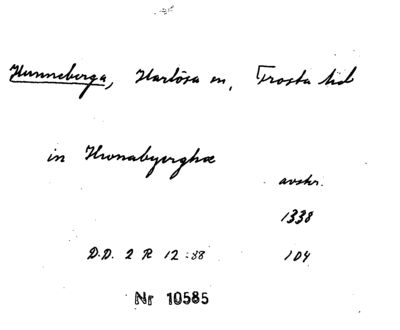 Hunneberga, Harlösa sn, Frosta hd
in Hwnabyerghæ
avskr.
1338
D.D. 2 R 12:88
104
Nr 10585